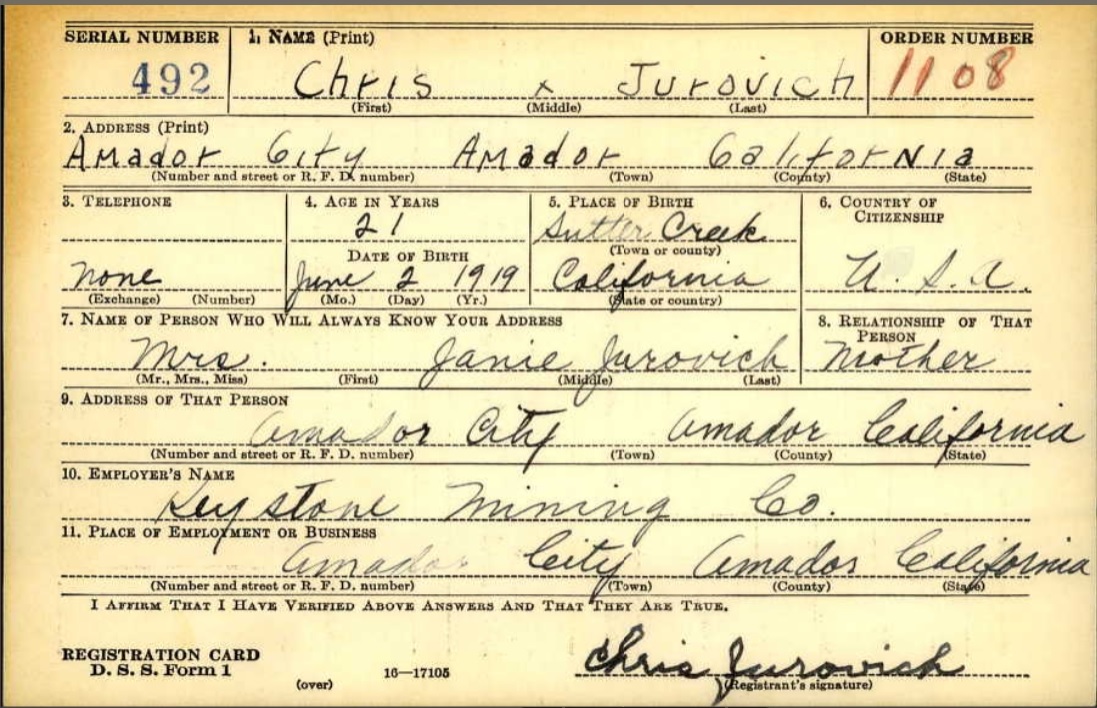 SERIAL NUMBER 1. NAME (Print) ORDER NUMBER
492 Chris x Jurovich 1108
(First) (Middle) (Last)
2. ADDRESS (Print)
Amador City Amador California
(Number and street or R. F. D. number) (Town) (County) (State)
3. TELEPHONE 4. AGE IN YEARS 5. PLACE OF BIRTH 6. COUNTRY OF CITIZENSHIP
21 Sutter Creek
DATE OF BIRTH (Town or county)
None June 2 1919 California U. S. A.
(Exchange) (Number) (Mo.) (Day) (Yr.) (State or country)
7. NAME OF PERSON WHO WILL ALWAYS KNOW YOUR ADDRESS 8. RELATIONSHIP OF THAT PERSON
Mrs. Janie Jurovich Mother
(Mr., Mrs., Miss) (First) (Middle) (Last)
9. ADDRESS OF THAT PERSON
Amador City Amador California
(Number and street or R. F. D. number) (Town) (County) (State)
10. EMPLOYER'S NAME
Keystone Mining Co.
11. PLACE OF EMPLOYMENT OR BUSINESS
Amador City Amador California
(Number and street or R. F. D. number) (Town) (County) (State)
I AFFIRM THAT I HAVE VERIFIED ABOVE ANSWERS AND THAT THEY ARE TRUE.
REGISTRATION CARD
D. S. S. Form 1 16—17105 Chris Jurovich
(over) (Registrant's signature)